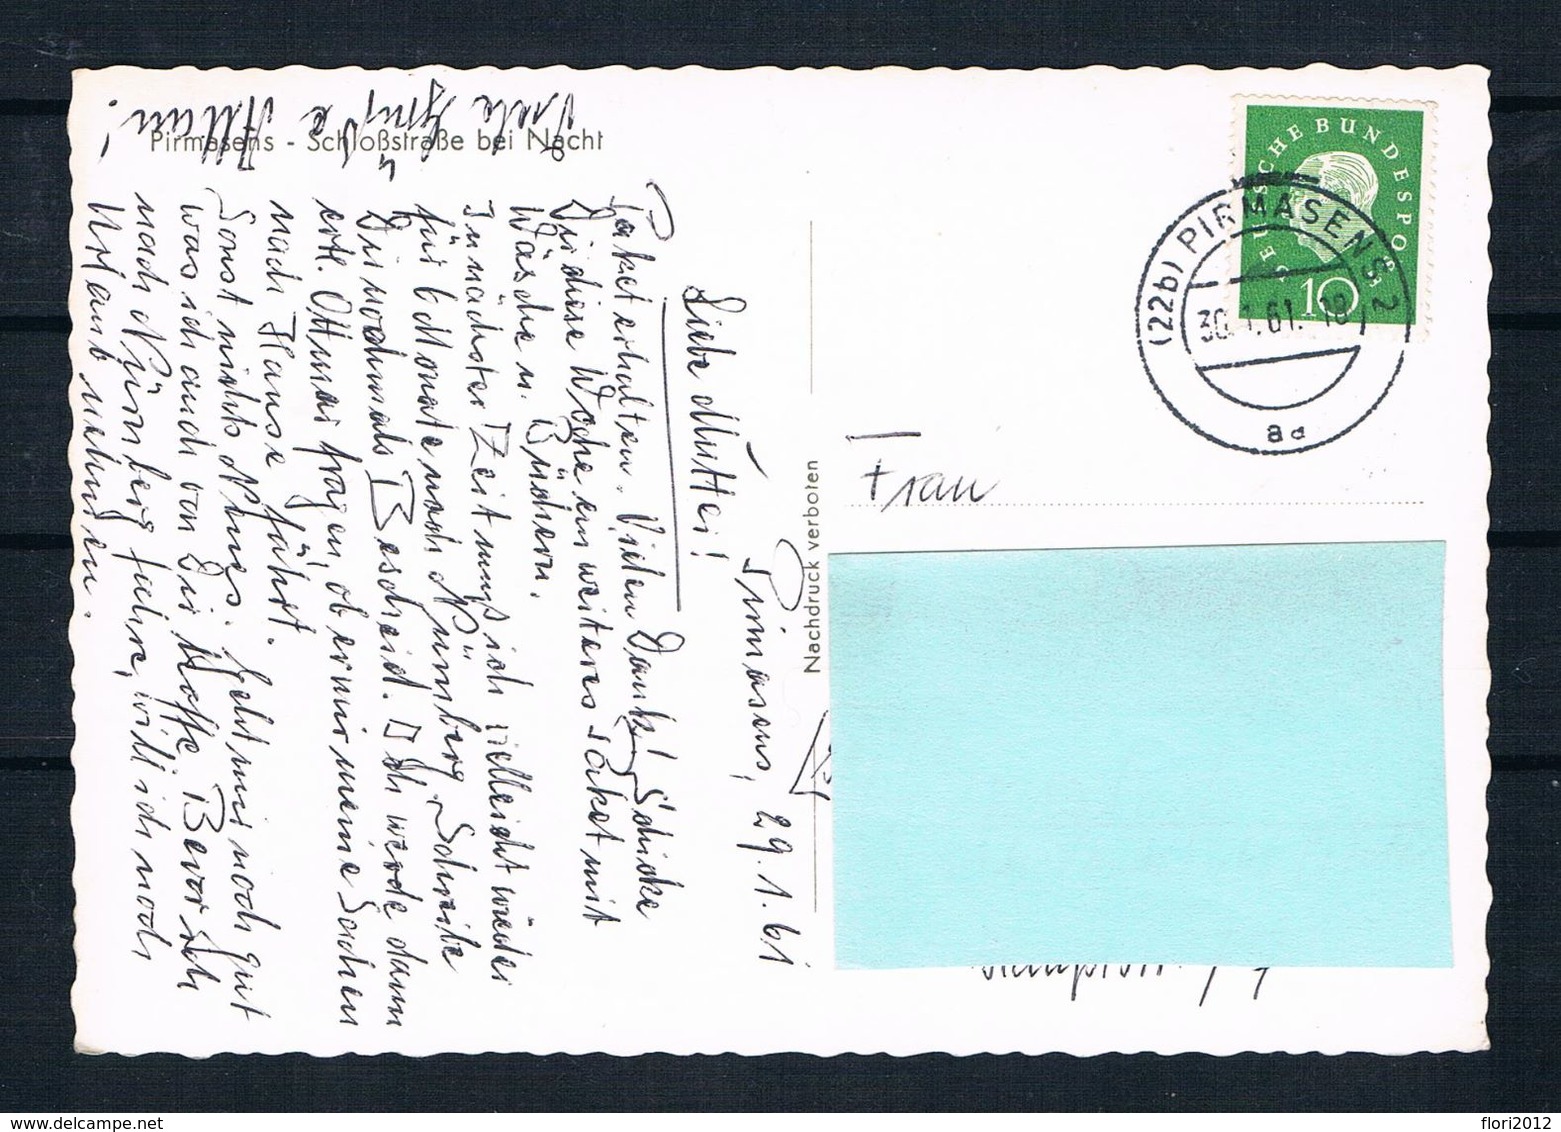 Pirmasens - Schloßstraße bei Nacht
Pirmasens, 29.1.61
Liebe Mutter!
Paket erhalten. Vielen Dank! Schicke
Dir diese Woche ein weiteres Paket mit
Wäsche u. Büchern.
In nächster Zeit muß ich vielleicht wieder
für 6 Monate nach Nürnberg. Schreibe
Dir nochmals Bescheid. Ich werde dann
evtl. Ottmar fragen, ob er mir meine Sachen
nach Hause fährt.
Sonst nichts Neues. Geht mir noch gut
was ich auch von Dir hoffe. Bevor ich
nach Nürnberg fahre, will ich noch
Urlaub nehmen.
Viele Grüße
an Allen!
Nachdruck verboten
Frau
DEUTSCHE BUNDESPOST
10
(22b) PIRMASENS 2
30.1.61.-18
ad
flori2012